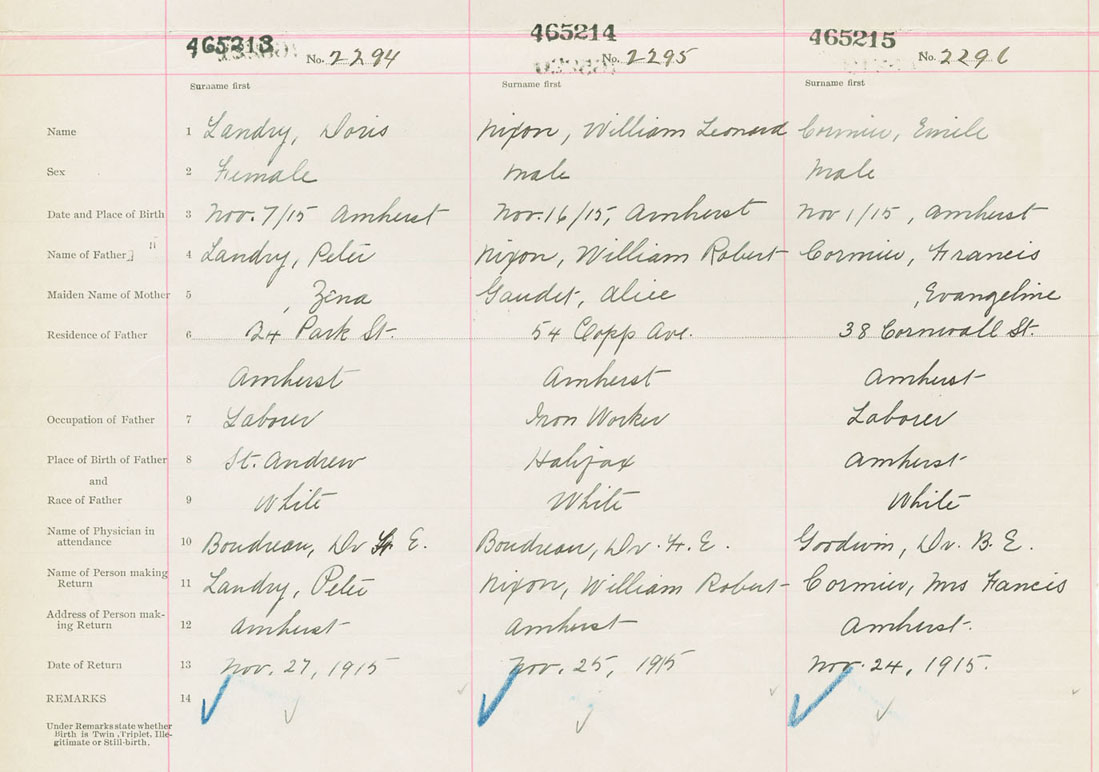 465213 465214 465215
No. 2294 No. 2295 No. 2296
Surname first Surname first Surname first
Name 1 Landry, Doris Nixon, William Leonard Cormier, Emile
Sex 2 Female Male Male
Date and Place of Birth 3 Nov. 7/15 Amherst Nov. 16/15, Amherst Nov 1/15, Amherst
Name of Father 4 Landry, Peter Nixon, William Robert Cormier, Francis
Maiden Name of Mother 5 , Zena Gaudet, Alice , Evangeline
Residence of Father 6 24 Park St. 54 Copp Ave. 38 Cornwall St.
Amherst Amherst Amherst
Occupation of Father 7 Laborer Iron Worker Laborer
Place of Birth of Father 8 St. Andrew Halifax Amherst
and
Race of Father 9 White White White
Name of Physician in
attendance 10 Boudreau, Dr E. Boudreau, Dr. F. E. Goodwin, Dr. B. E.
Name of Person making
Return 11 Landry, Peter Nixon, William Robert Cormier, Mrs Fancis
Address of Person mak-
ing Return 12 Amherst Amherst Amherst.
Date of Return 13 Nov. 27, 1915 Nov. 25, 1915 Nov. 24, 1915.
REMARKS 14
Under Remarks state whether
Birth is Twin, Triplet, Ille-
gitimate or Still-birth.